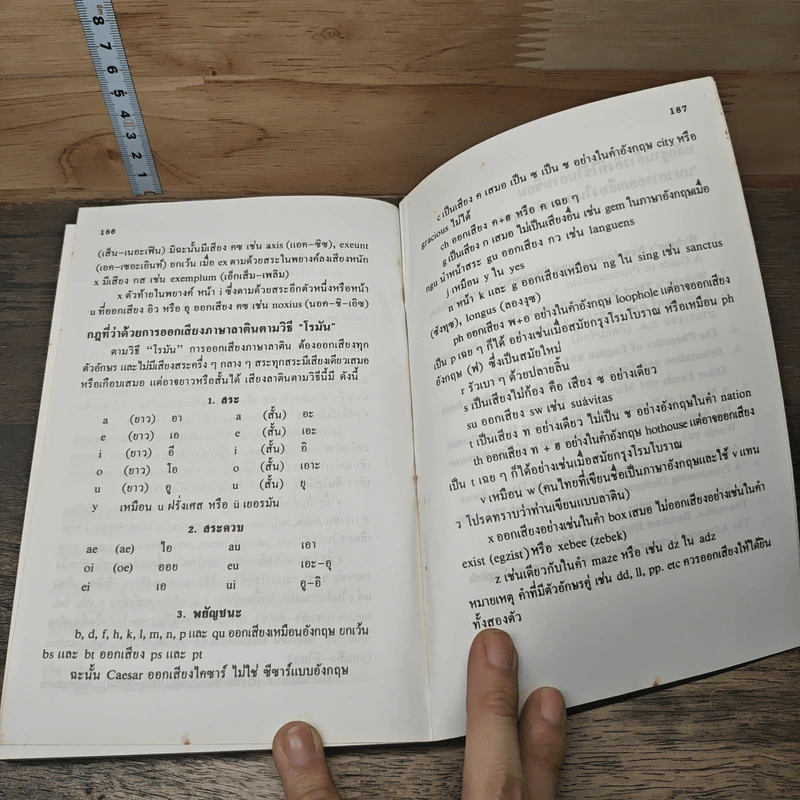 186
(เส็น-เนอะเฟิน) มิฉะนั้นมีเสียง คซ เช่น axis (แอค-ซิซ), exeunt
(เอค-เซอะเอินท์) ยกเว้น เมื่อ ex ตามด้วยสระในพยางค์ลงเสียงหนัก
x มีเสียง กส เช่น exemplum (เอ็กเส็ม-เพลิม)
x ตัวท้ายในพยางค์ หน้า i ซึ่งตามด้วยสระอีกตัวหนึ่งหรือหน้า
u ที่ออกเสียง อิว หรือ อุ ออกเสียง คช เช่น noxius (นอค-ชิ-เอิซ)
กฎที่ว่าด้วยการออกเสียงภาษาลาตินตามวิธี "โรมัน"
ตามวิธี "โรมัน" การออกเสียงภาษาลาติน ต้องออกเสียงทุก
ตัวอักษร และไม่มีเสียงสระครึ่ง ๆ กลาง ๆ สระทุกสระมีเสียงเดียวเสมอ
หรือเกือบเสมอ แต่อาจยาวหรือสั้นได้ เสียงลาตินตามวิธีนี้มี ดังนี้
1. สระ
a (ยาว) อา a (สั้น) อะ
e (ยาว) เอ e (สั้น) เอะ
i (ยาว) อี i (สั้น) อิ
o (ยาว) โอ o (สั้น) เอาะ
u (ยาว) อู u (สั้น) ยุ
y เหมือน u ฝรั่งเศส หรือ ü เยอรมัน
2. สระควบ
ae (ae) ไอ au เอา
oi (oe) ออย eu เอะ-อุ
ei เอ ui อู-อิ
3. พยัญชนะ
b, d, f, h, k, l, m, n, p และ qu ออกเสียงเหมือนอังกฤษ ยกเว้น
bs และ bt ออกเสียง ps และ pt
ฉะนั้น Caesar ออกเสียงไคซาร์ ไม่ใช่ ซีซาร์แบบอังกฤษ
187
c เป็นเสียง ค เสมอ เป็น ซ เป็น ช อย่างในคำอังกฤษ city หรือ
gracious ไม่ได้
ch ออกเสียง ค+ฮ หรือ ค เฉย ๆ
g เป็นเสียง ก เสมอ ไม่เป็นเสียงอื่น เช่น gem ในภาษาอังกฤษเมื่อ
ngu นำหน้าสระ gu ออกเสียง กว เช่น languens
j เหมือน y ใน yes
n หน้า k และ g ออกเสียงเหมือน ng ใน sing เช่น sanctus
(ซังทุซ), longus (ลองงุซ)
ph ออกเสียง พ+อ อย่างในคำอังกฤษ loophole แต่อาจออกเสียง
เป็น p เฉย ๆ ก็ได้ อย่างเช่นเมื่อสมัยกรุงโรมโบราณ หรือเหมือน ph
อังกฤษ (ฟ) ซึ่งเป็นสมัยใหม่
r รัวเบา ๆ ด้วยปลายลิ้น
s เป็นเสียงไม่ก้อง คือ เสียง ซ อย่างเดียว
su ออกเสียง sw เช่น suávitas
t เป็นเสียง ท อย่างเดียว ไม่เป็น ช อย่างอังกฤษในคำ nation
th ออกเสียง ท + ฮ อย่างในคำอังกฤษ hothouse แต่อาจออกเสียง
เป็น t เฉย ๆ ก็ได้อย่างเช่นเมื่อสมัยกรุงโรมโบราณ
v เหมือน w (คนไทยที่เขียนชื่อเป็นภาษาอังกฤษและใช้ v แทน
ว โปรดทราบว่าท่านเขียนแบบลาติน)
x ออกเสียงอย่างเช่นในคำ box เสมอ ไม่ออกเสียงอย่างเช่นในคำ
exist (egzist) หรือ xebee (zebek)
z เช่นเดียวกับในคำ maze หรือ เช่น dz ใน adz
หมายเหตุ คำที่มีตัวอักษรคู่ เช่น dd, ll, pp. etc ควรออกเสียงให้ได้ยิน
ทั้งสองตัว
8 7 6 5 4 3 2 1